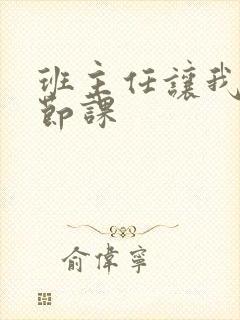 班主任讓我
節課
俞偉寧